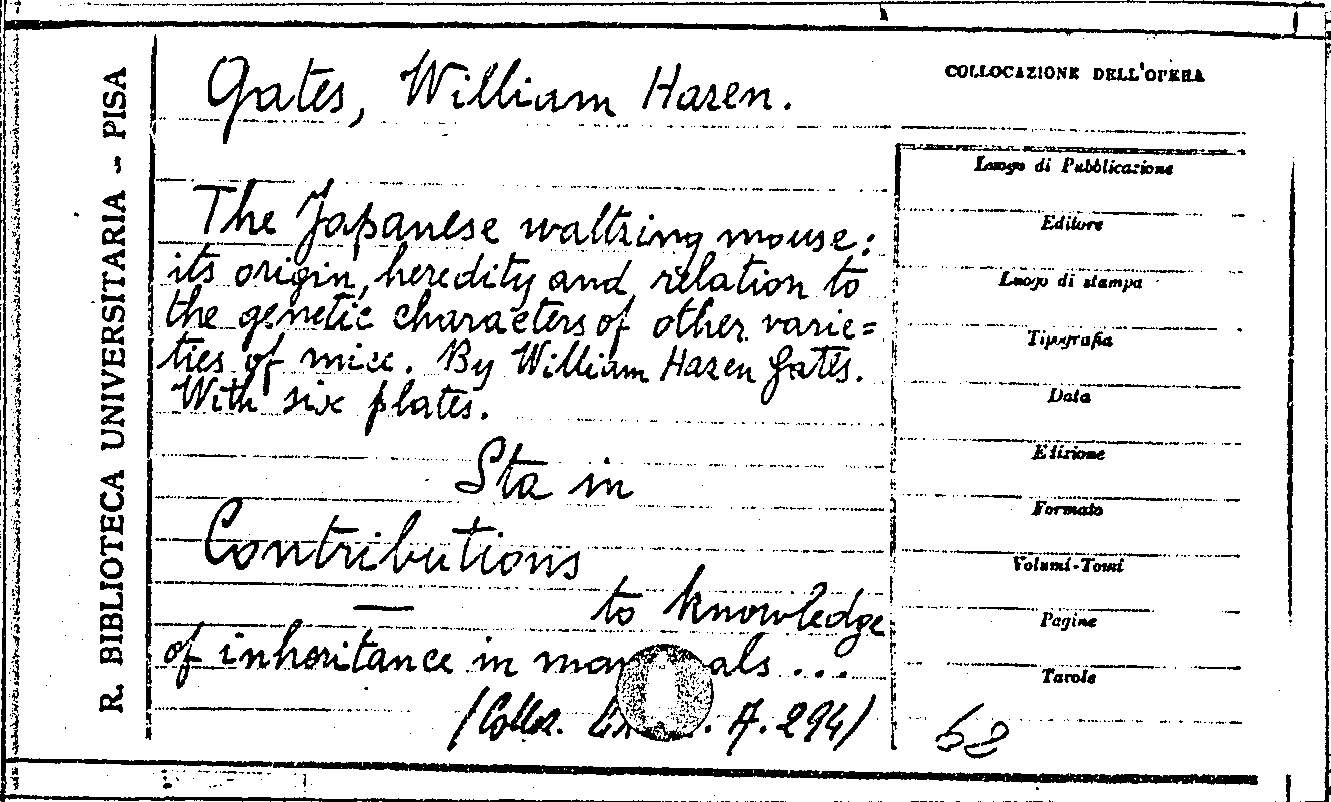 R. BIBLIOTECA UNIVERSITARIA - PISA
Gates, William Hazen.
The Japanese waltzing mouse:
its origin, heredity and relation to
the genetic characters of other varie=
ties of mice. By William Hazen Gates.
With six plates.
Sta in
Contributions
— to knowledge
of inheritance in mam als ...
(Colloz. . A. 294)
COLLOCAZIONE DELL'OPERA
Luogo di Pubblicazione
Editore
Luogo di stampa
Tipografia
Data
Edizione
Formato
Volumi-Tomi
Pagine
Tavole
68